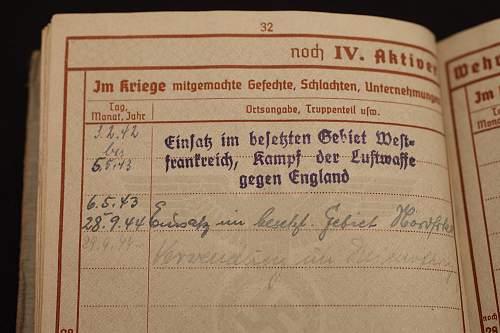 32
noch IV. Aktiver
Wehr
Im Kriege mitgemachte Gefechte, Schlachten, Unternehmungen
Im
Tag, Monat, Jahr
Ortsangabe, Truppenteil usw.
Tag
Monat,
3.2.42
bis
5.5.43
Einsatz im besetzten Gebiet West-
frankreich, Kampf der Luftwaffe
gegen England
6.5.43
28.9.44 Einsatz im besetzt. Gebiet
29.9.44 Verwendung im
noch
28